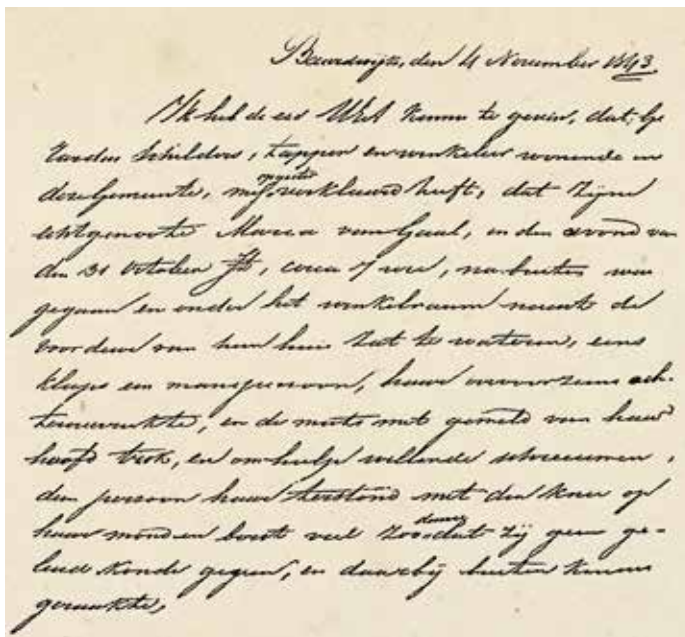 Baardwijk, den 4 November 1843.
Ik heb de eer UEA kennis te geven, dat; Ge
rardus Schilders, tapper en winkelier wonende in
deze Gemeente, mij opgeeft verklaard heeft, dat zijne
echtgenoote Maria van Gaal, in den avond van
den 31 October jl, circa 7 ure, na buiten was
gegaan en onder het winkelraam naast de
voordeur van hun huis zat te wateren, eens
klaps een manspersoon, haar achter
rukte, en de muts met geweld van haar
hoofd trok, en om hulp willende schreeuwen,
den persoon haar terstond met den knie op
haar mond en borst viel zoodat zij geen ge-
luid konde geven, en daarbij buiten kennis
geraakte,